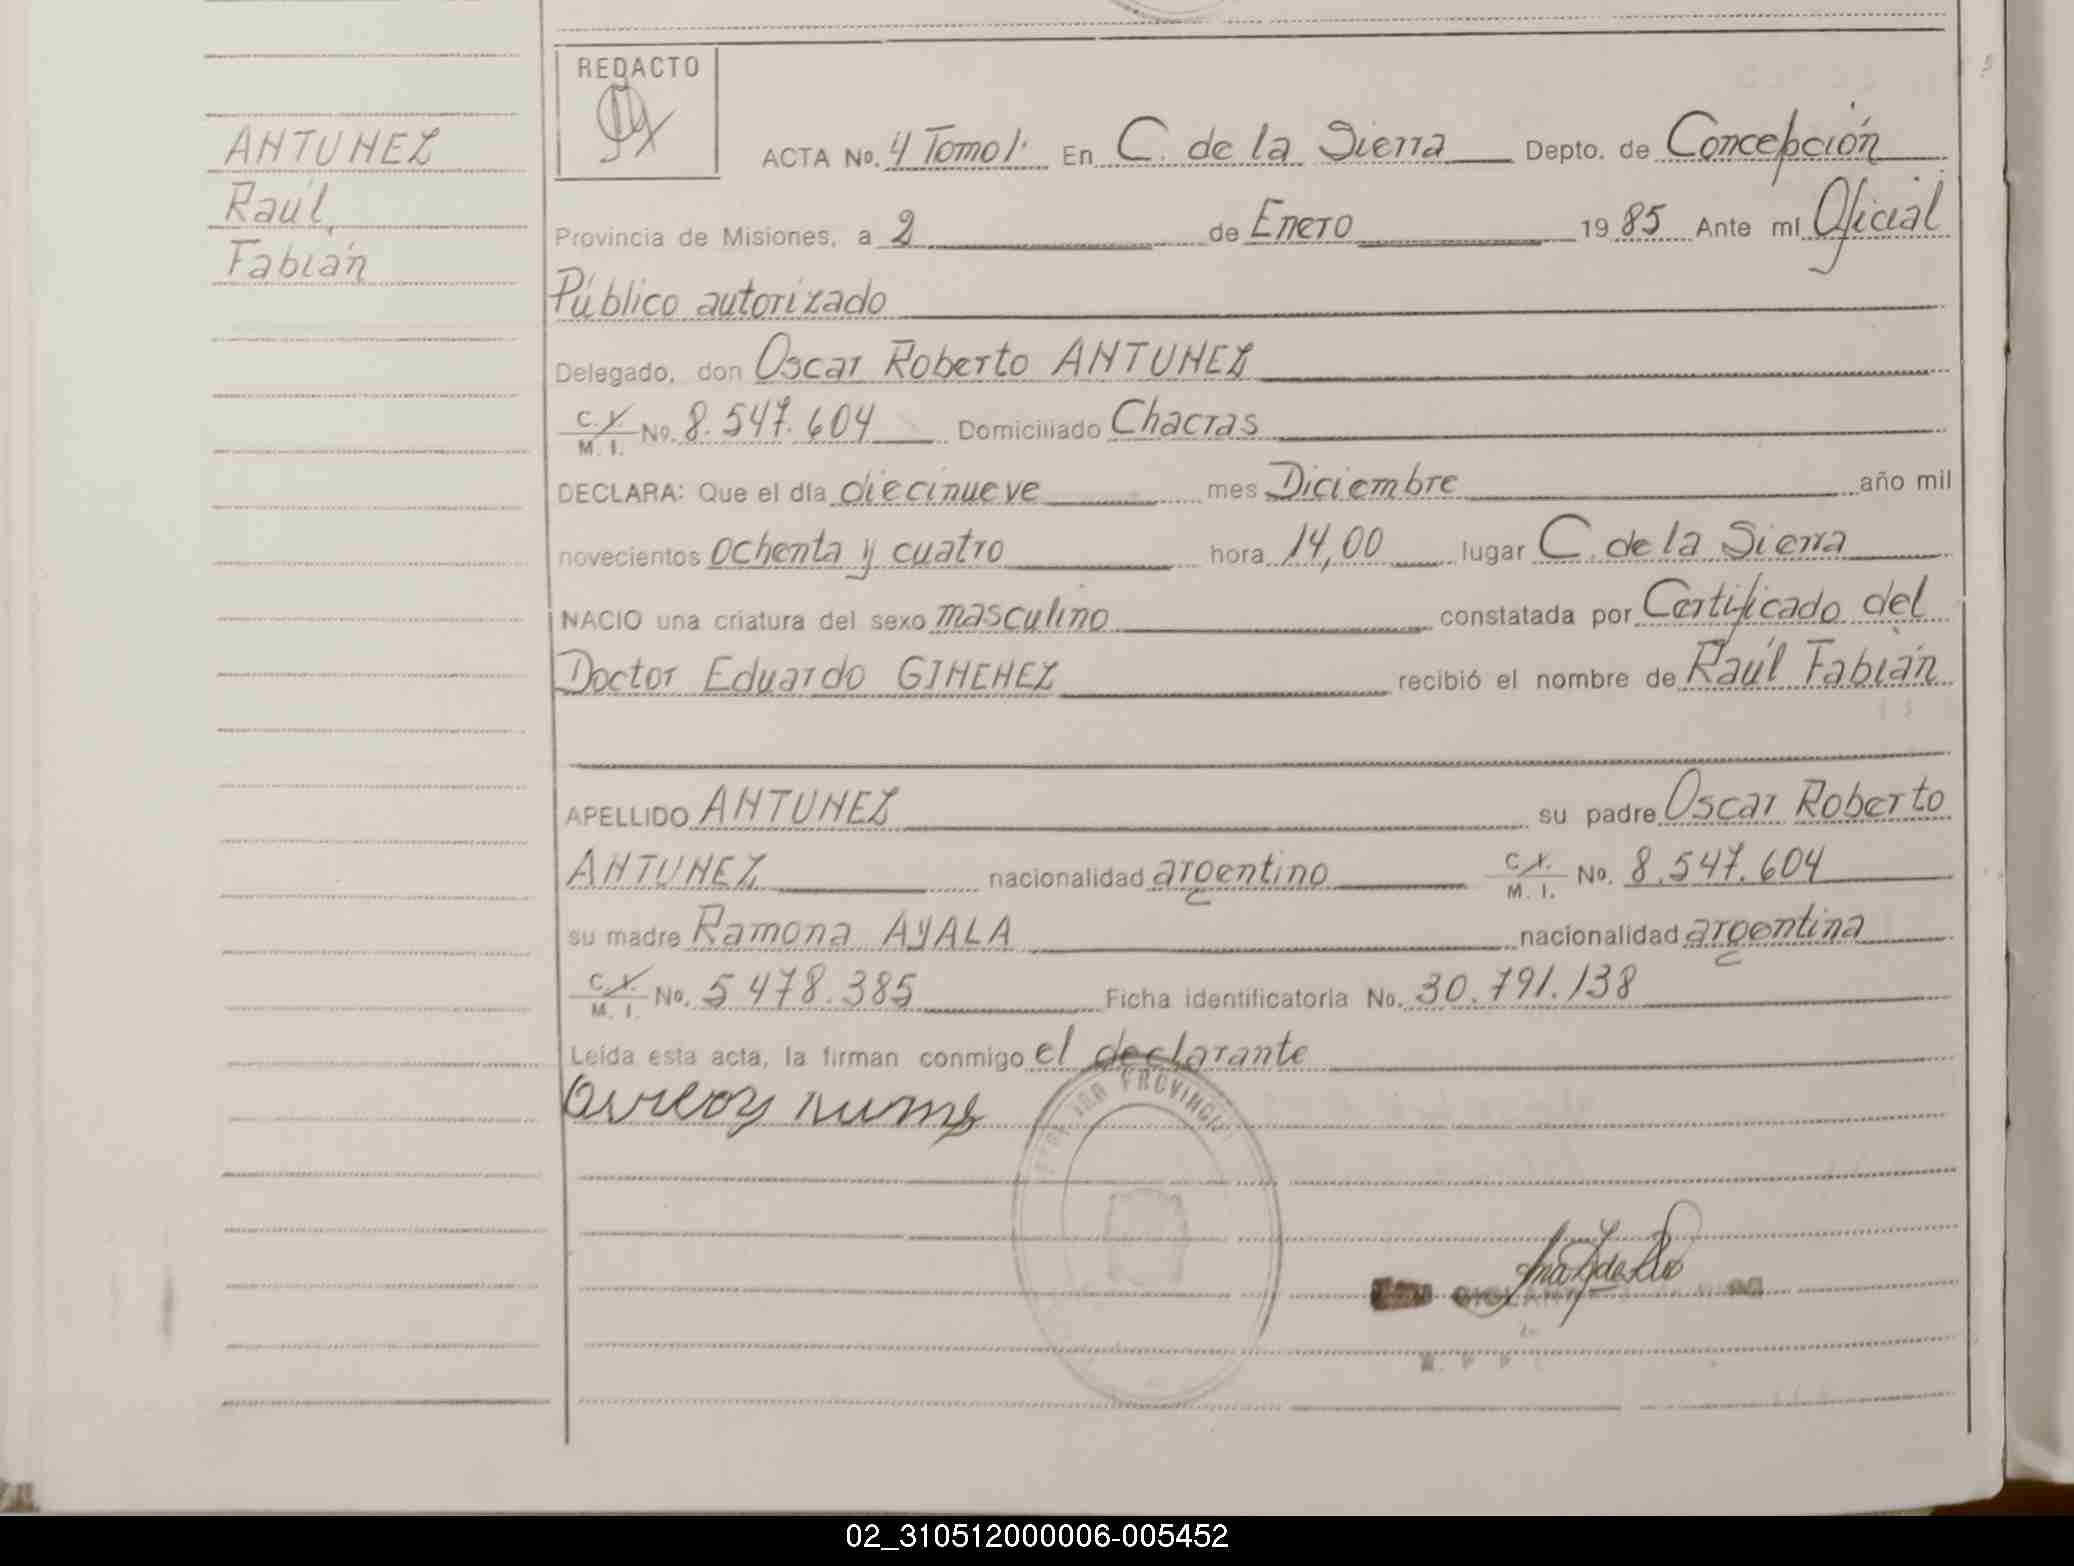 ANTUNEZ
Raúl,
Fabián
REDACTO
ACTA No. 4 Tomo 1. En C. de la Sierra Depto. de Concepción
Provincia de Misiones, a 2 de Enero 1985 Ante mí Oficial
Público autorizado
Delegado, don Oscar Roberto ANTUNEZ
C. I. M. I. No. 8.547.604 Domiciliado Chacras
DECLARA: Que el día diecinueve mes Diciembre año mil
novecientos ochenta y cuatro hora 14,00 lugar C. de la Sierra
NACIO una criatura del sexo masculino constatada por Certificado del
Doctor Eduardo GIMENEZ recibió el nombre de Raúl Fabián
APELLIDO ANTUNEZ su padre Oscar Roberto
ANTUNEZ nacionalidad argentino C. I. M. I. No. 8.547.604
su madre Ramona AYALA nacionalidad argentina
C. I. M. I. No. 5 478.385 Ficha identificatoria No. 30.791.138
Leída esta acta, la firman conmigo el declarante
PROVINCIAL
02_310512000006-005452